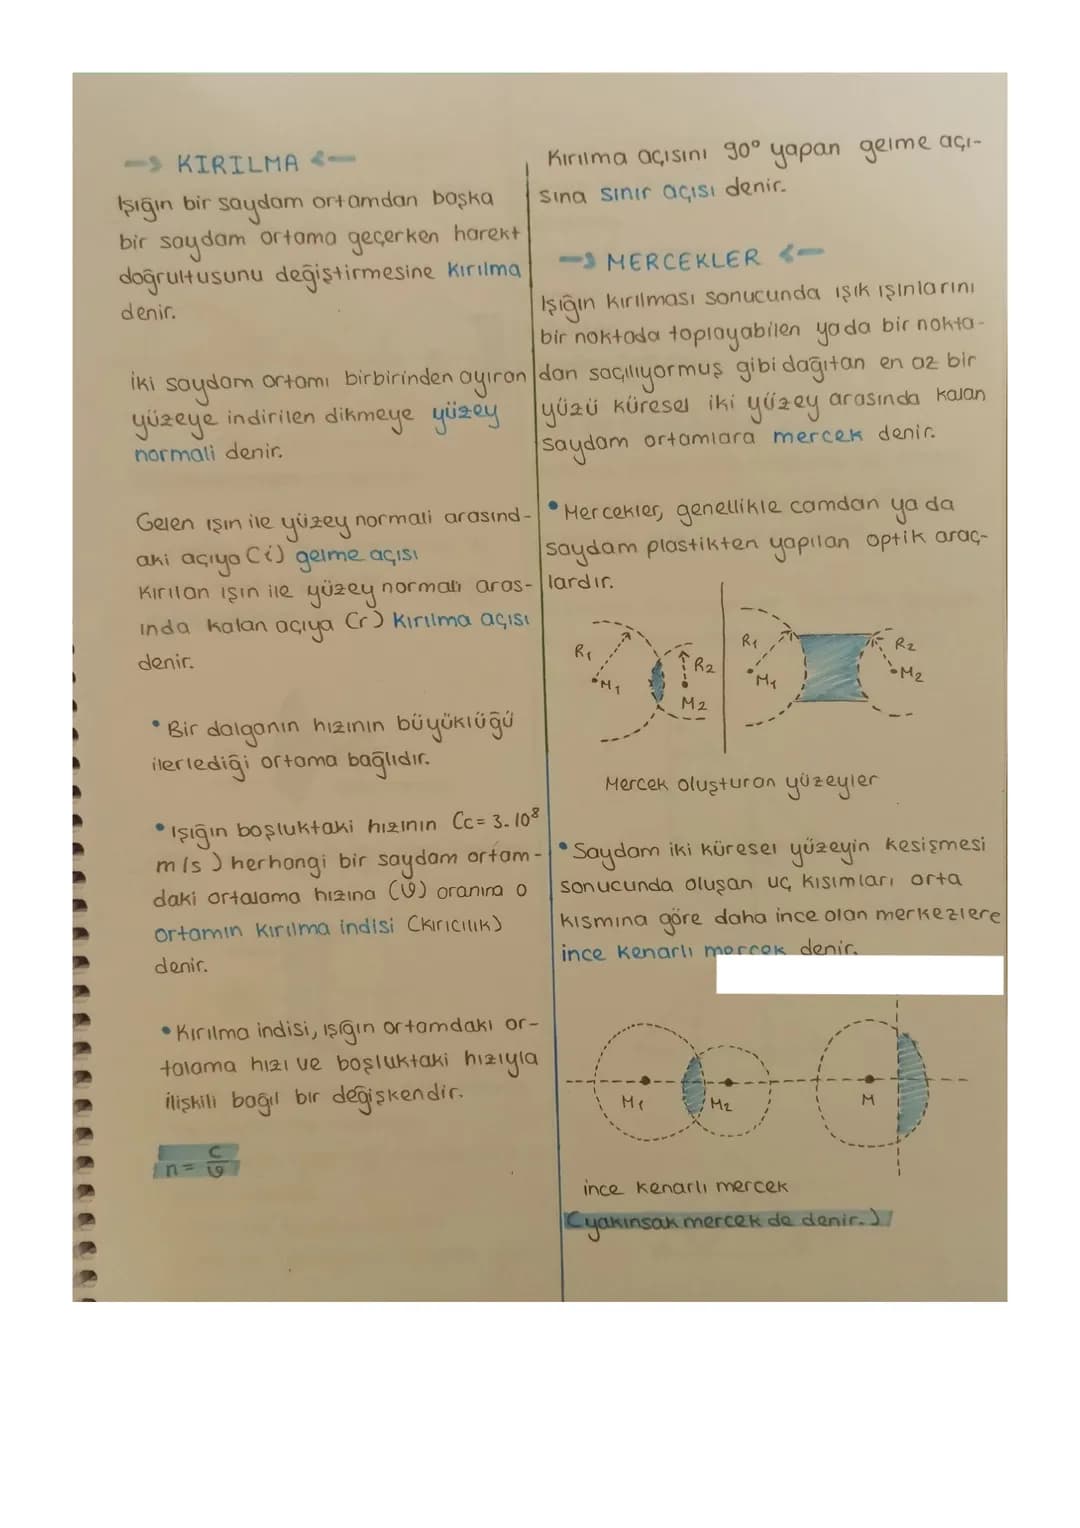 → KIRILMA ←
Işığın bir saydam ortamdan başka
bir saydam ortama geçerken harekt
doğrultusunu değiştirmesine kırılma
denir.
İki saydam ortamı birbirinden ayıran
yüzeye indirilen dikmeye yüzey
normali denir.
Gelen ışın ile yüzey normali arasınd-
aki açıya (i) gelme açısı
Kırılan ışın ile yüzey normali aras-
ında kalan açıya (r) kırılma açısı
denir.
• Bir dalganın hızının büyüklüğü
ilerlediği ortama bağlıdır.
• Işığın boşluktaki hızının (c= 3.10⁸
m/s) herhangi bir saydam ortam-
daki ortalama hızına (υ) oranına o
ortamın kırılma indisi (kırıcılık)
denir.
• Kırılma indisi, ışığın ortamdaki or-
talama hızı ve boşluktaki hızıyla
ilişkili bağıl bir değişkendir.
n = c/υ
Kırılma açısını 90° yapan gelme açı-
sına sınır açısı denir.
→ MERCEKLER ←
Işığın kırılması sonucunda ışık ışınlarını
bir noktada toplayabilen ya da bir nokta-
dan saçılıyormuş gibi dağıtan en az bir
yüzü küresel iki yüzey arasında kalan
saydam ortamlara mercek denir.
• Mercekler, genellikle camdan ya da
saydam plastikten yapılan optik araç-
lardır.
R₁ M₁ R₂ M₂ R₁ M₁ R₂ M₂
Mercek oluşturan yüzeyler
• Saydam iki küresel yüzeyin kesişmesi
sonucunda oluşan uç kısımları orta
kısmına göre daha ince olan merkezlere
ince kenarlı mercek denir.
M₁ M₂ M
ince kenarlı mercek
(yakınsak mercek de denir.)